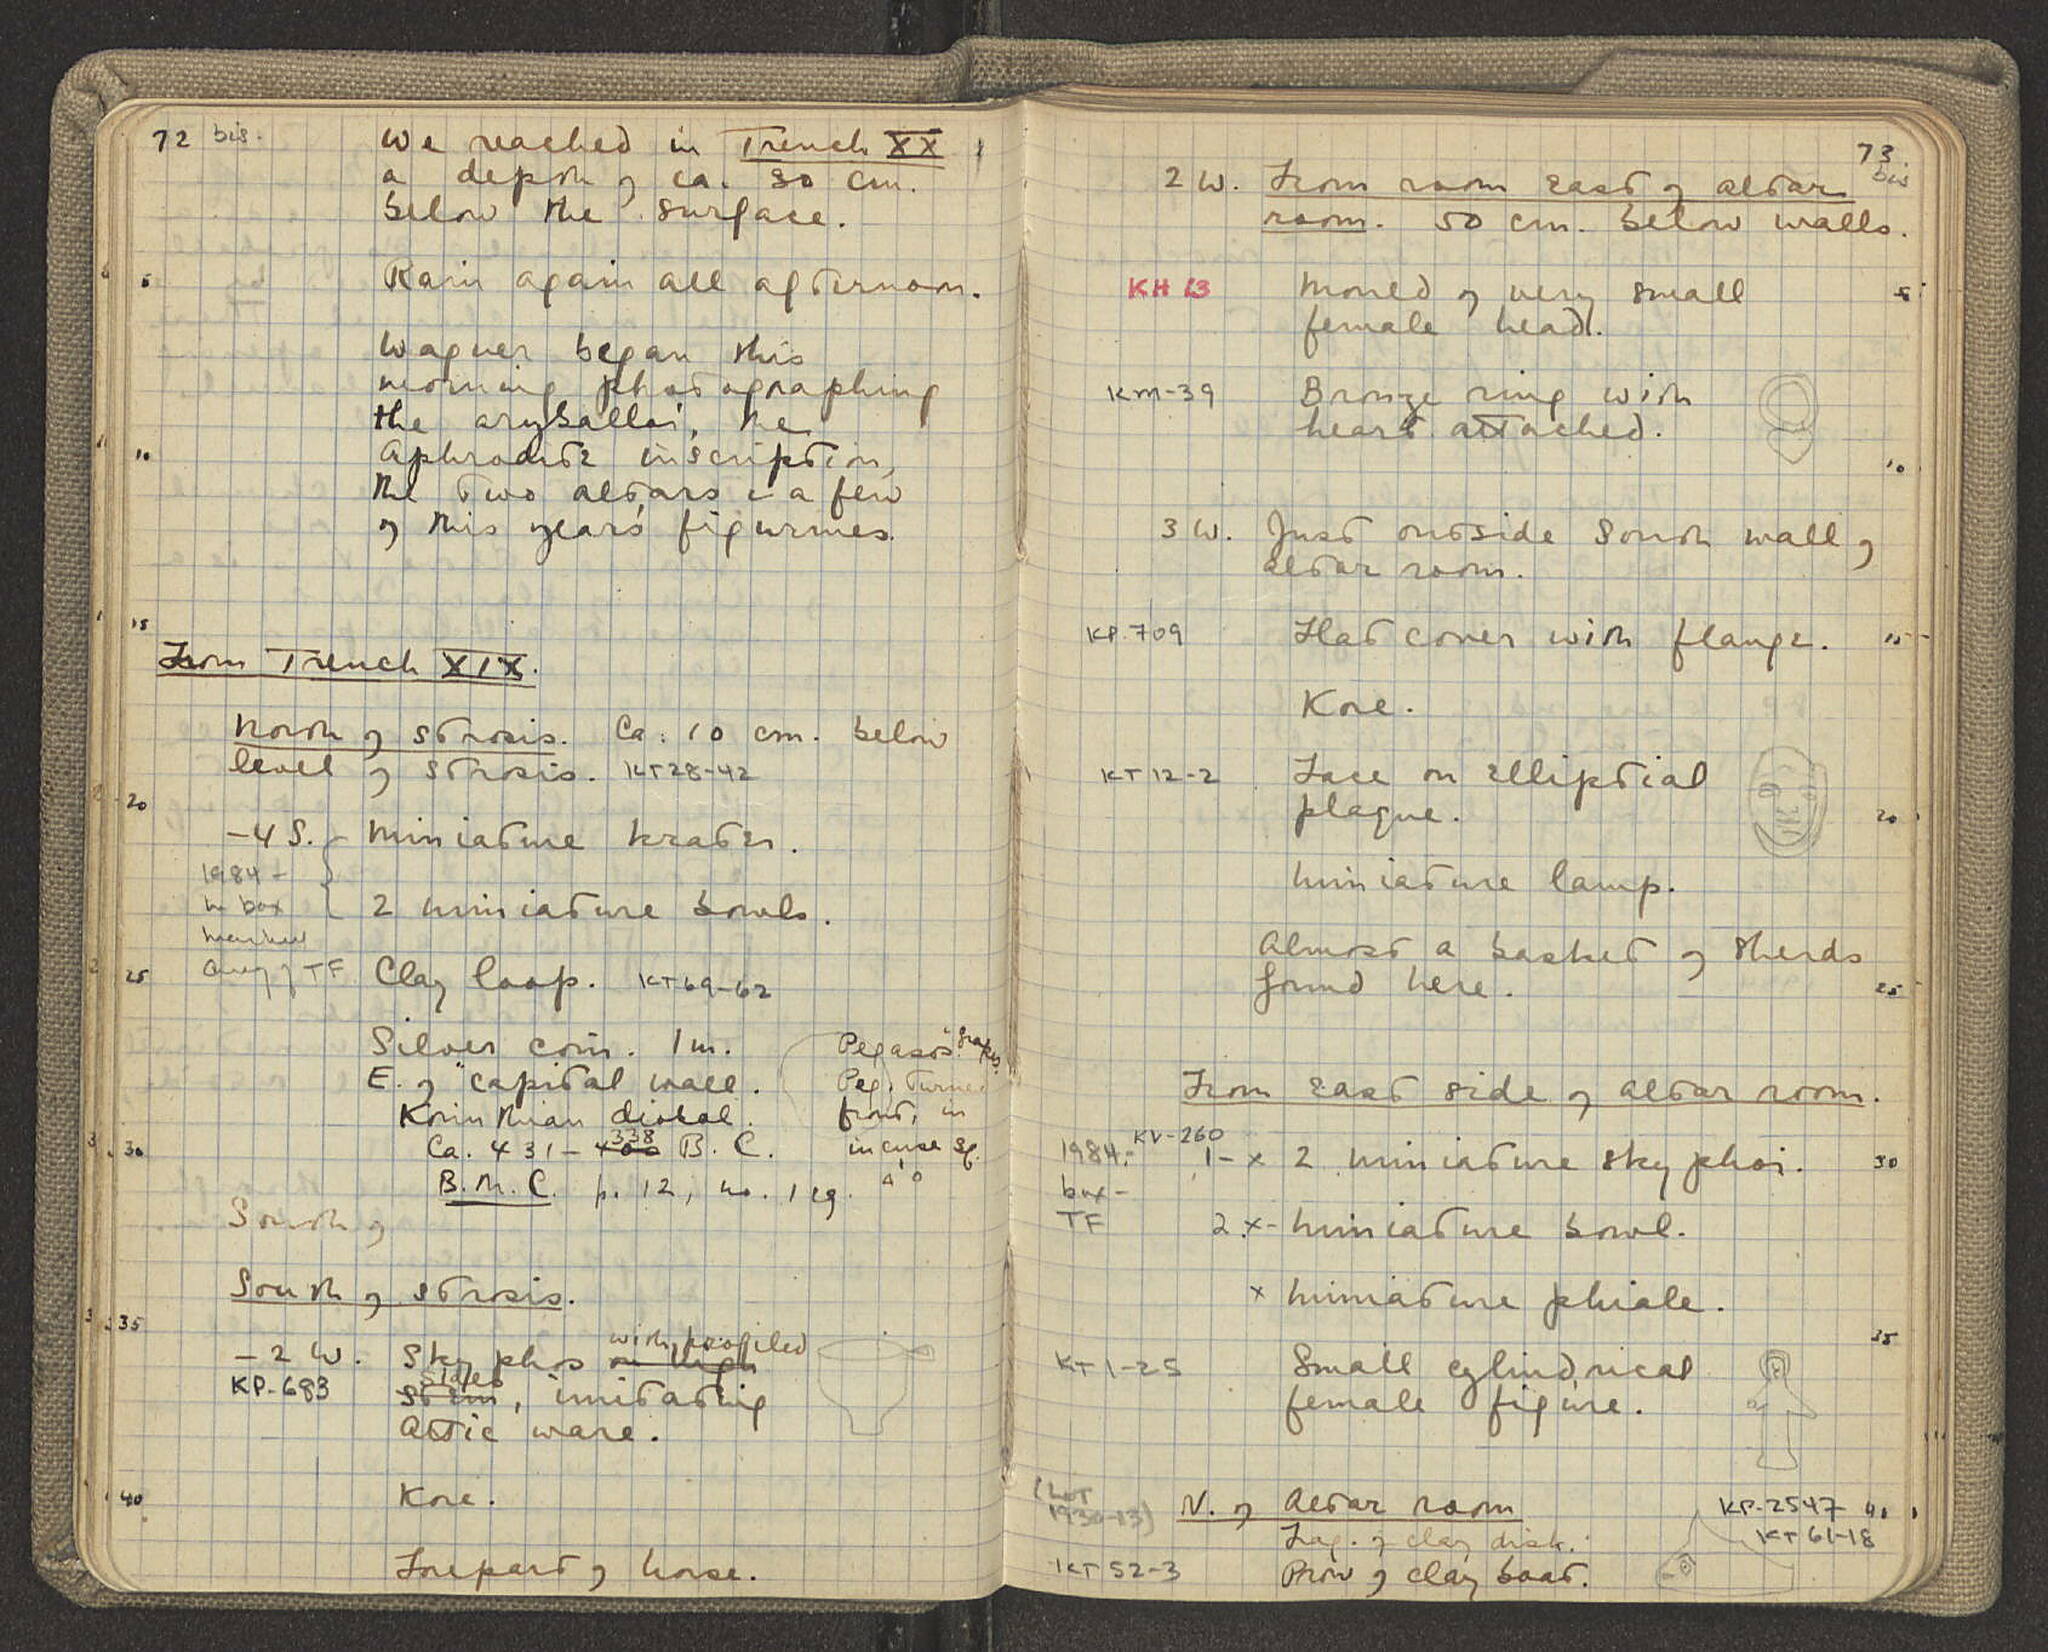 72 bis.
We reached in Trench XX
a depth of ca. 30 cm.
below the surface.
5
Rain again all afternoon.
Wagner began this
morning photographing
the aryballoi, the
10
Aphrodite inscription,
the two altars & a few
of this year's figurines.
15
From Trench XIX.
North of strosis. Ca. 10 cm. below
level of strosis. KT28-42
20
-4 S. - Miniature krater.
1984 -
in box
2 miniature bowls.
marked
25 TF Clay loop. KT69-62
Silver coin. 1 m. Pegasos
E. of "capital wall. Peg. turned
Korinthian diobol. front, in
30 Ca. 431-400 338 B.C. incuse sq.
B.M.C. p. 12, no. 129.
South of
South of strosis.
35
-2 W. Skyphos on high with profiled
KP-683 stem sides, imitating
Attic ware.
40 Kore.
Forepart of horse.
73.
bis
2 W. From room east of altar
room. 50 cm. below walls.
KH 13 Mould of very small 5
female head.
KM-39 Bronze ring with
heart attached.
10
3 W. Just outside South wall of
altar room.
KP.709 Flat cover with flange. 15
Kore.
KT12-2 Face on elliptial
plaque. 20
Miniature lamp.
Almost a basket of sherds
found here. 25
From east side of altar room.
KV-260
1984- 1-x 2 miniature skyphoi. 30
box-
TF 2.x- Miniature bowl.
x Miniature phiale.
35
KT1-25 Small cylindrical
female figure.
(Lot
1930-13) N. of Altar room KP-2547 40
Frag. of clay disk. KT61-18
KT52-3 Prow of clay boat.